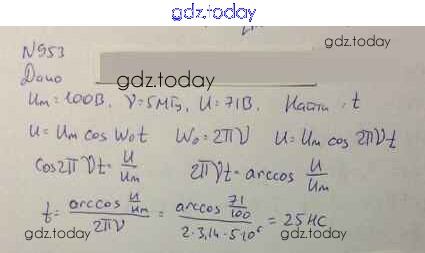 gdz.today
N953
gdz.today
Дано
gdz.today
Um = 100В, V = 5МГц, U = 71В. Найти: t
U = Um cos W₀t W₀ = 2πV U = Um cos 2πVt
cos2πVt = U/Um 2πVt = arccos U/Um
t = arccos U/Um / 2πV = arccos 71/100 / 2·3,14·5·10⁶ = 25 НС
gdz.today gdz.today